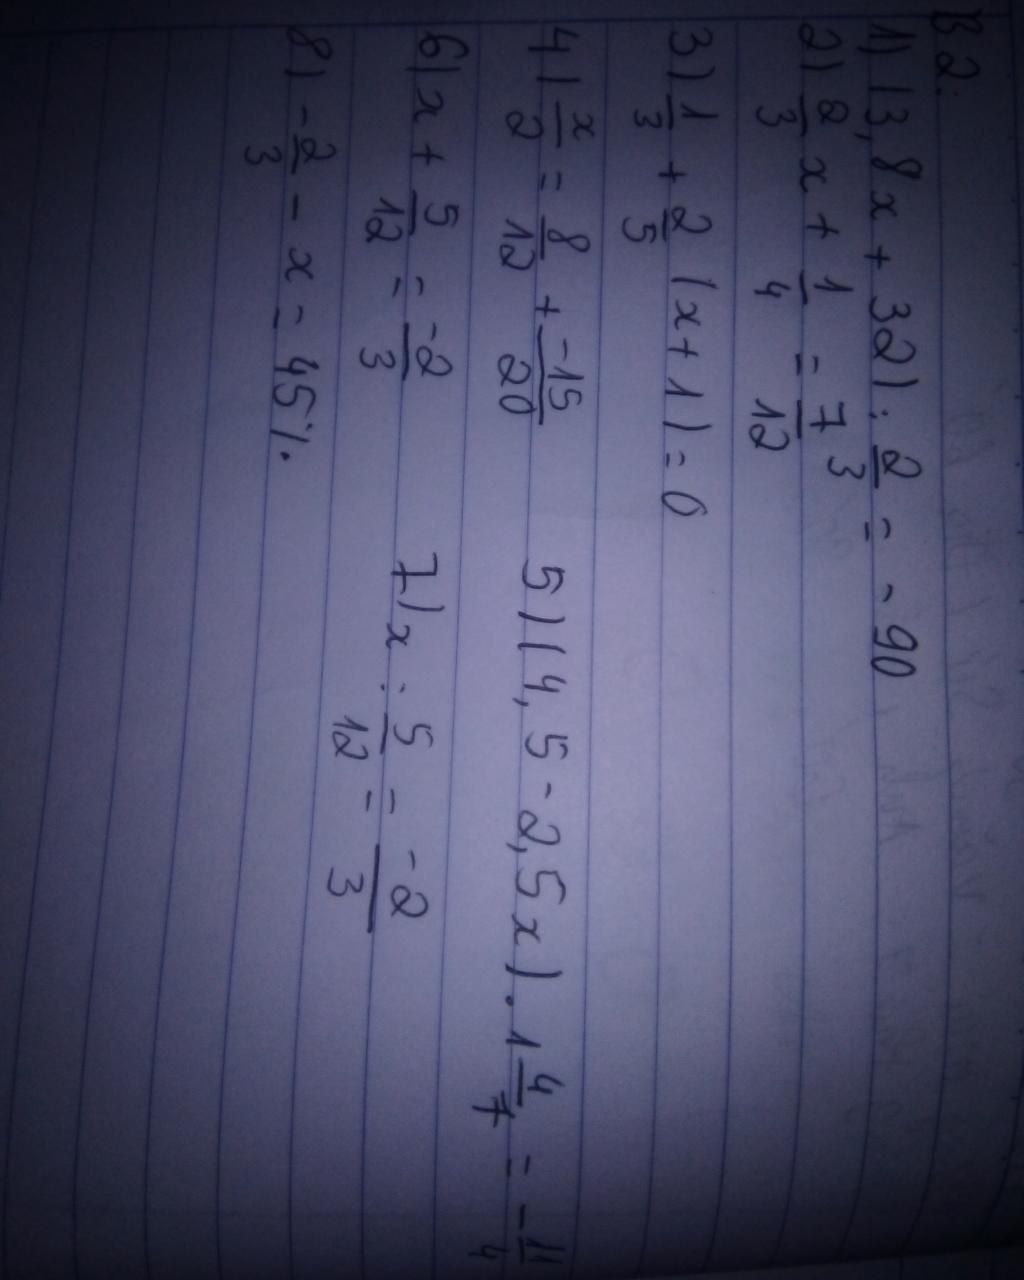 B2:
1) (3,8x + 32) : 2/3 = -90
2) 2/3 x + 1/4 = 7/12
3) 1/3 + 2/5 (x+1) = 0
4) x/2 = 8/12 + -15/20 5) (4,5 - 2,5x) . 1 4/7 = - 11/4
6) x + 5/12 = -2/3 7) x : 5/12 = -2/3
8) -2/3 - x = 45%.